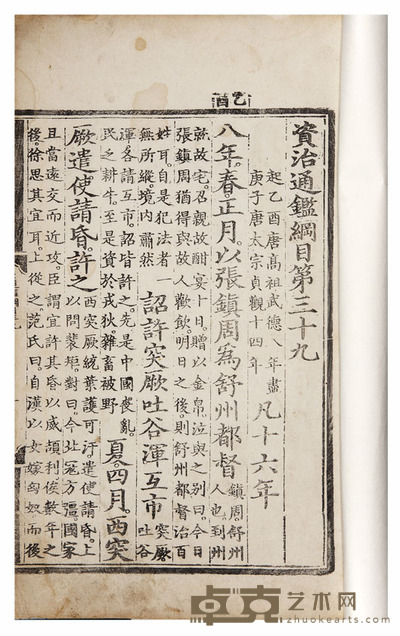 乙酉
資治通鑑綱目第三十九
起乙酉唐高祖武德八年盡
庚子唐太宗貞觀十四年
凡十六年
八年。春。正月。以張鎮周爲舒州都督
鎮周。舒州
人也。到州
就故宅。召親故酣宴十日。贈以金帛泣與之别曰。今日
張鎮周猶得與故人歡飲。明日之後則舒州都督治百
姓耳。自是犯法者一
無所縱。境内肅然
詔許突厥吐谷渾互市
突厥
吐谷
渾各請互市。詔皆許之。先是中國喪亂。
民乏耕牛。至是資於戎狄。雜畜被野
夏。四月。西突
厥遣使請昏。許之
西突厥統葉護可汗遣使請昏。上
以問裴矩。對曰。今北寇方彊國家
且當遠交而近攻。臣謂宜許其昏以威頡利。俟數年之
後。徐思其宜耳。上從之。范氏曰。自漢以女嫁匈奴而後
卓克艺术网
zhuokearts.com